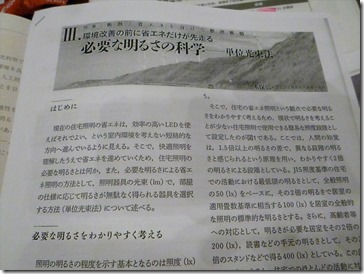 III.
環境改善の前に省エネだけが先走る
必要な明るさの科学
単位光束法
はじめに
現在の住宅照明の省エネは、効率の高いLEDを使
えばそれでよい、という室内環境を考えない短絡的な
方向へ進んでいるように見える。そこで、快適照明を
理解したうえで省エネを進めていくため、住宅照明の
必要な明るさとは何か、また、必要な明るさによる省エ
ネ照明の方法として、照明器具の光束(lm)で、部屋
の仕様に応じて明るさが無駄なく得られる器具を選択
する方法(単位光束法)について述べる。
必要な明るさをわかりやすく考える
照明の明るさの程度を示す基本となるのは照度(lx)
そこで、住宅の省エネ照明という観点で必要な明る
さをわかりやすく考えるため、現状で照明を考えるこ
とが少ない住宅照明で使用できる簡易な照度段階とし
て設定したのが図1である。ここでは、人間の知覚
は、1.5倍以上の明るさの差で、異なる段階の明るさ
と感じられるという原理を用い、わかりやすく2倍
の明るさによる段階としている。JIS照度基準の住宅
での活動における最低限の明るさとして、全般照明
の50(lx)をベースに、その2倍の明るさで居室の
適用畳数基準に相当する100(lx)を居室の全般的
な照明の標準的な明るさとする。さらに、高齢者等
への対応として、明るさが必要な居室をその2倍の
200(lx)、読書などの手元の明るさとして、その2
倍のスタンドなどで得る400(lx)としている。